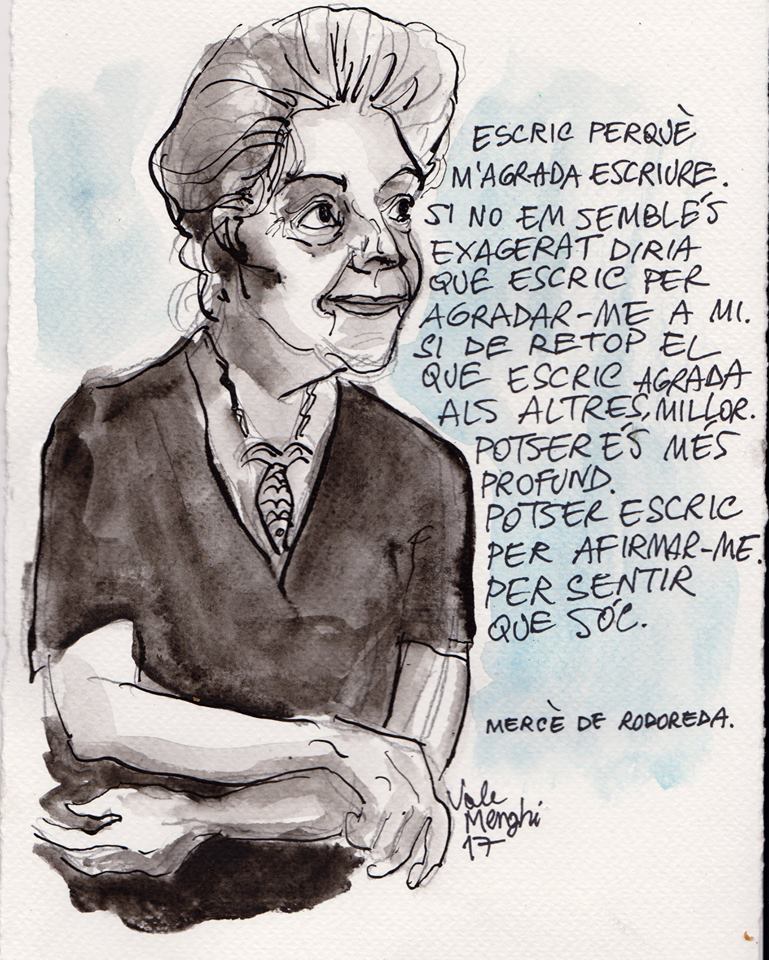 ESCRIC PERQUÈ
M'AGRADA ESCRIURE.
SI NO EM SEMBLÉS
EXAGERAT DIRIA
QUE ESCRIC PER
AGRADAR-ME A MI.
SI DE RETOP EL
QUE ESCRIC AGRADA
ALS ALTRES, MILLOR.
POTSER ÉS MÉS
PROFUND.
POTSER ESCRIC
PER AFIRMAR-ME.
PER SENTIR
QUE SÓC.
MERCÈ DE RODOREDA.
Vale
Menghi
17